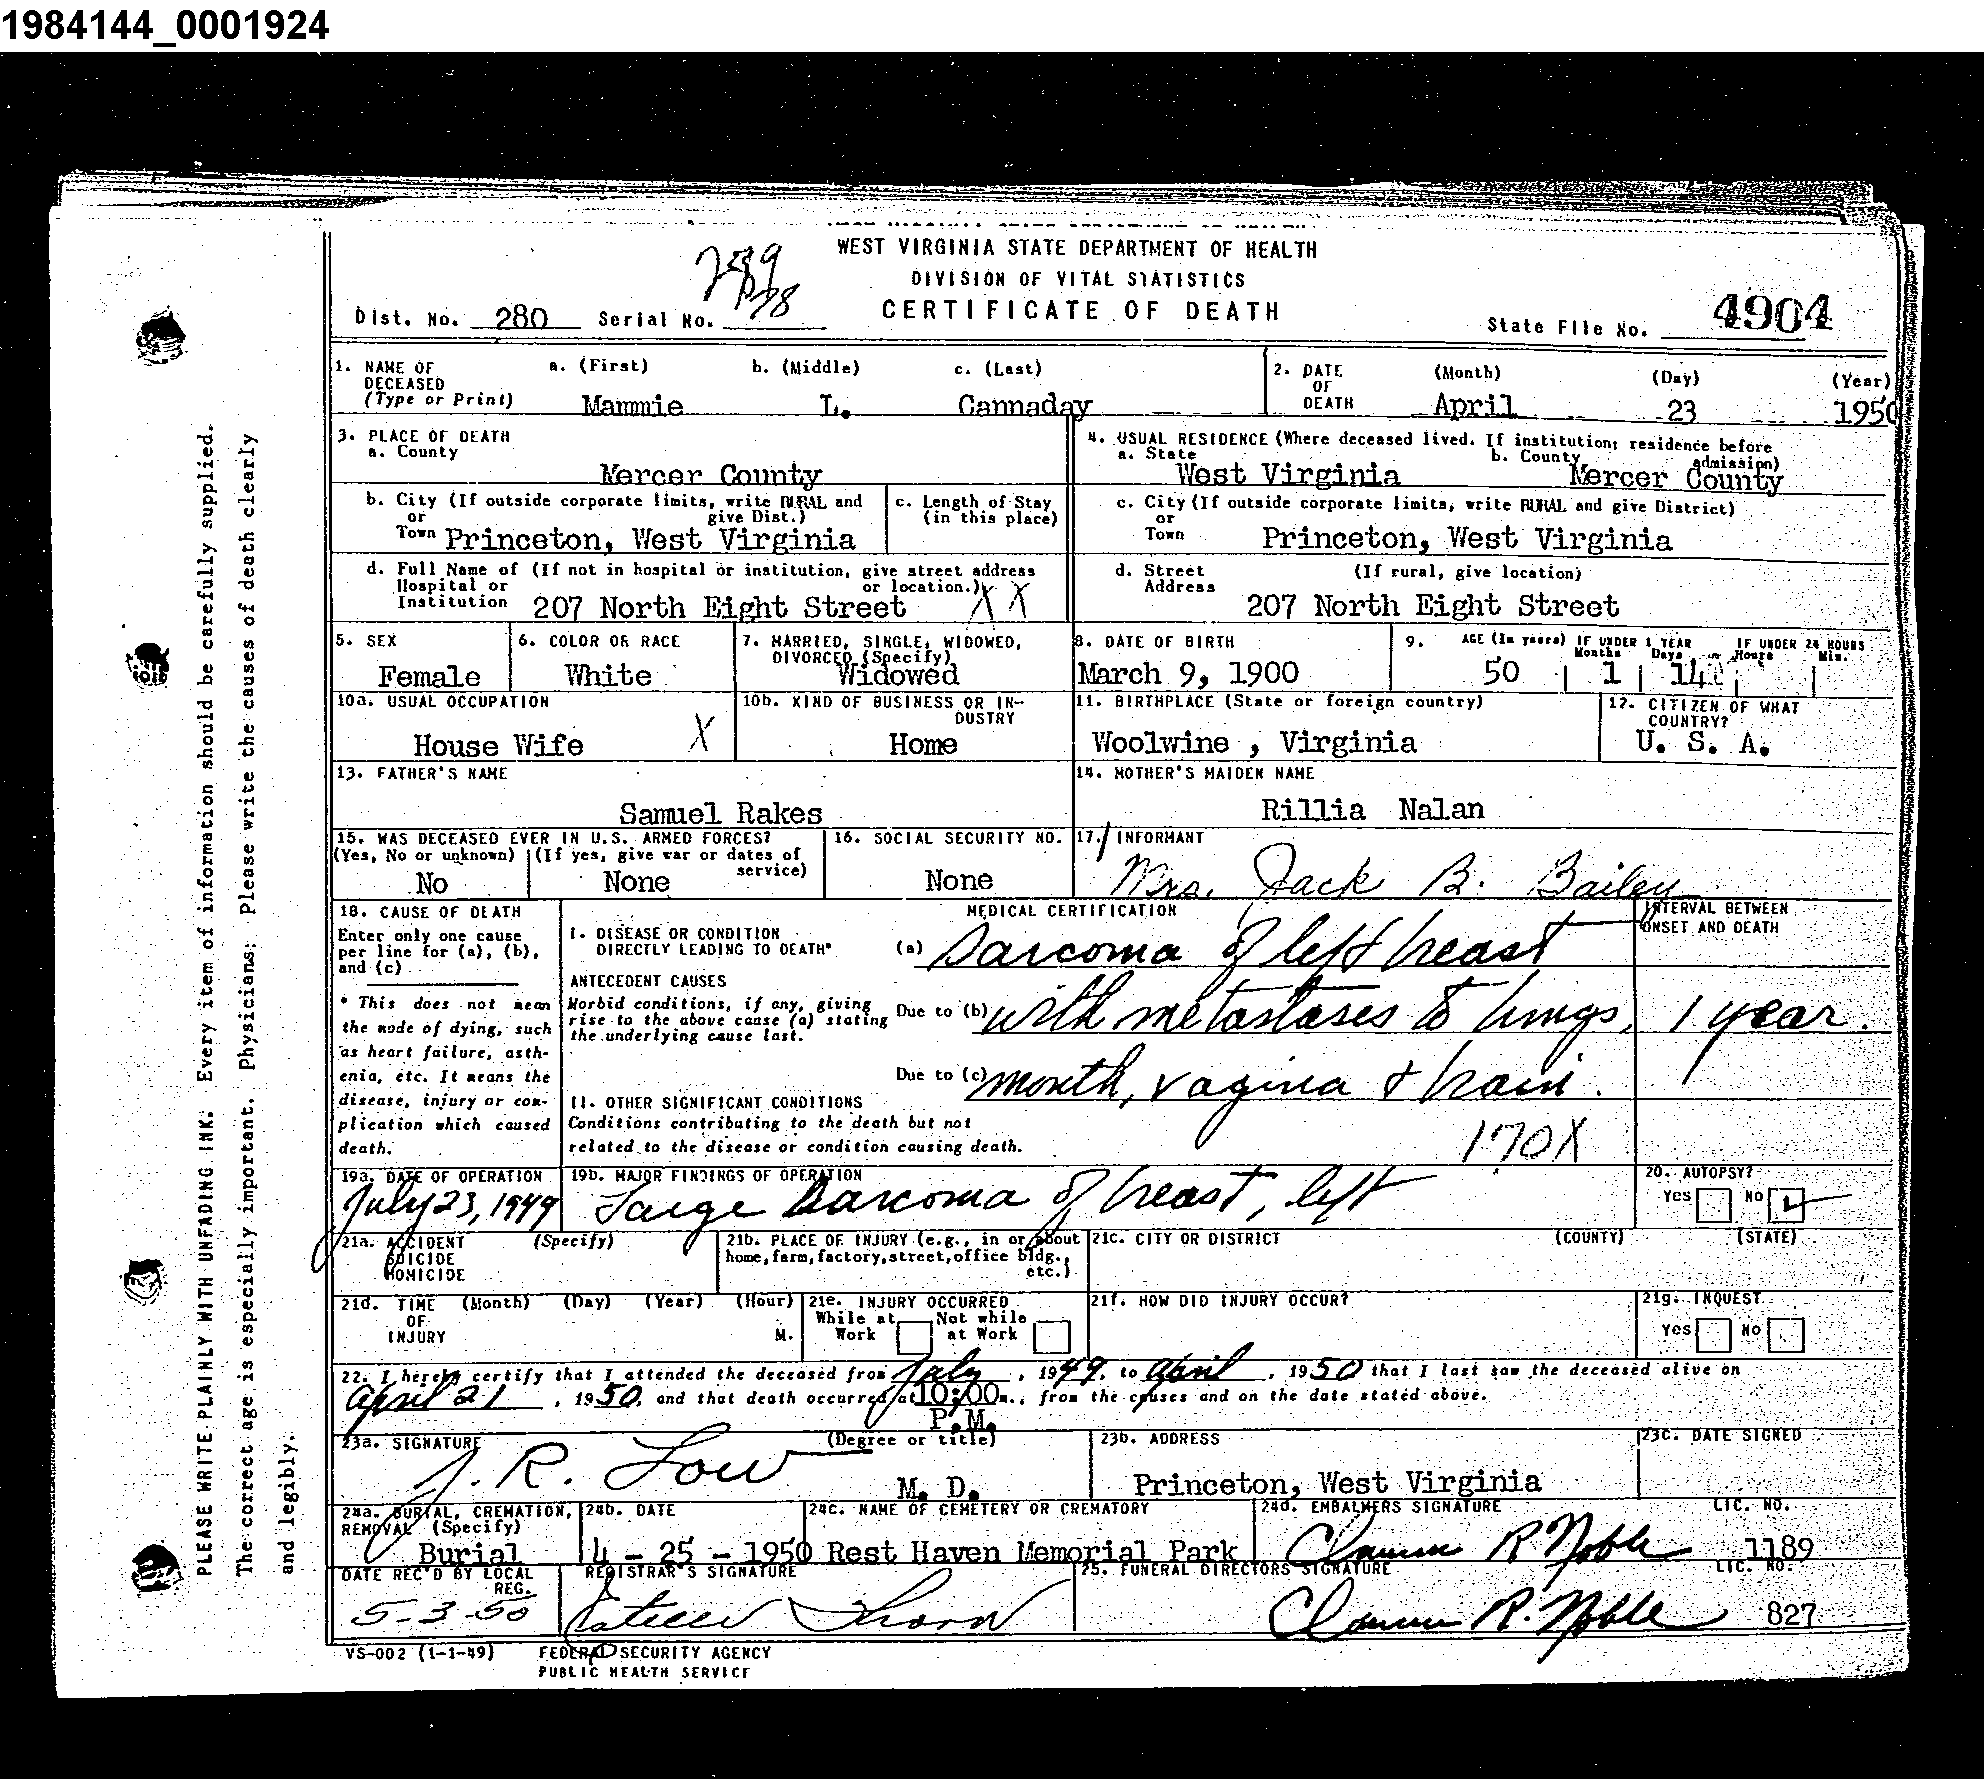 1984144_0001924
WEST VIRGINIA STATE DEPARTMENT OF HEALTH
DIVISION OF VITAL STATISTICS
CERTIFICATE OF DEATH
Dist. No. 280 Serial No. 78
State File No. 4904
1. NAME OF DECEASED (Type or Print) a. (First) b. (Middle) c. (Last)
Mammie L. Cannaday
2. DATE OF DEATH (Month) (Day) (Year)
April 23 1950
3. PLACE OF DEATH
a. County
Mercer County
4. USUAL RESIDENCE (Where deceased lived. If institution; residence before admission)
a. State West Virginia b. County Mercer County
b. City (If outside corporate limits, write RURAL and give Dist.)
or Town Princeton, West Virginia
c. Length of Stay (in this place)
c. City (If outside corporate limits, write RURAL and give District)
or Town Princeton, West Virginia
d. Full Name of (If not in hospital or institution, give street address or location.)
Hospital or Institution 207 North Eight Street X X
d. Street Address (If rural, give location)
207 North Eight Street
5. SEX
Female
6. COLOR OR RACE
White
7. MARRIED, SINGLE, WIDOWED, DIVORCED (Specify)
Widowed
8. DATE OF BIRTH
March 9, 1900
9. AGE (In years) IF UNDER 1 YEAR Months Days IF UNDER 24 HOURS Hours Min.
50 1 14
10a. USUAL OCCUPATION
House Wife X
10b. KIND OF BUSINESS OR INDUSTRY
Home
11. BIRTHPLACE (State or foreign country)
Woolwine , Virginia
12. CITIZEN OF WHAT COUNTRY?
U. S. A.
13. FATHER'S NAME
Samuel Rakes
14. MOTHER'S MAIDEN NAME
Rillia Nalan
15. WAS DECEASED EVER IN U.S. ARMED FORCES?
(Yes, No or unknown) (If yes, give war or dates of service)
No None
16. SOCIAL SECURITY NO.
None
17. INFORMANT
Mrs. Jack B. Bailey
18. CAUSE OF DEATH
Enter only one cause per line for (a), (b), and (c)
* This does not mean the mode of dying, such as heart failure, asthenia, etc. It means the disease, injury or complication which caused death.
MEDICAL CERTIFICATION
INTERVAL BETWEEN ONSET AND DEATH
I. DISEASE OR CONDITION DIRECTLY LEADING TO DEATH*
(a) Sarcoma of left breast
ANTECEDENT CAUSES
Morbid conditions, if any, giving rise to the above cause (a) stating the underlying cause last.
Due to (b) with metastases to lungs, 1 year.
Due to (c) mouth, vagina & brain.
II. OTHER SIGNIFICANT CONDITIONS
Conditions contributing to the death but not related to the disease or condition causing death.
170X
19a. DATE OF OPERATION
July 23, 1949
19b. MAJOR FINDINGS OF OPERATION
Large Sarcoma of breast, left
20. AUTOPSY?
Yes No
21a. ACCIDENT SUICIDE HOMICIDE (Specify)
21b. PLACE OF INJURY (e.g., in or about home, farm, factory, street, office bldg., etc.)
21c. CITY OR DISTRICT (COUNTY) (STATE)
21d. TIME OF INJURY (Month) (Day) (Year) (Hour) M.
21e. INJURY OCCURRED
While at Work Not while at Work
21f. HOW DID INJURY OCCUR?
21g. INQUEST
Yes No
22. I hereby certify that I attended the deceased from July, 1949, to April, 1950 that I last saw the deceased alive on
April 21, 1950, and that death occurred at 10:00 m., from the causes and on the date stated above.
P.M.
23a. SIGNATURE (Degree or title)
J. R. Low M. D.
23b. ADDRESS
Princeton, West Virginia
23c. DATE SIGNED
24a. BURIAL, CREMATION, REMOVAL (Specify)
Burial
24b. DATE
4 - 25 - 1950
24c. NAME OF CEMETERY OR CREMATORY
Rest Haven Memorial Park
24d. EMBALMERS SIGNATURE LIC. NO.
R Noble 1189
DATE REC'D BY LOCAL REG.
5-3-50
REGISTRAR'S SIGNATURE
Thorn
25. FUNERAL DIRECTORS SIGNATURE LIC. NO.
R. Noble 827
VS-002 (1-1-49)
FEDERAL SECURITY AGENCY
PUBLIC HEALTH SERVICE
PLEASE WRITE PLAINLY WITH UNFADING INK. Every item of information should be carefully supplied.
The correct age is especially important. Physicians: Please write the causes of death clearly
and legibly.